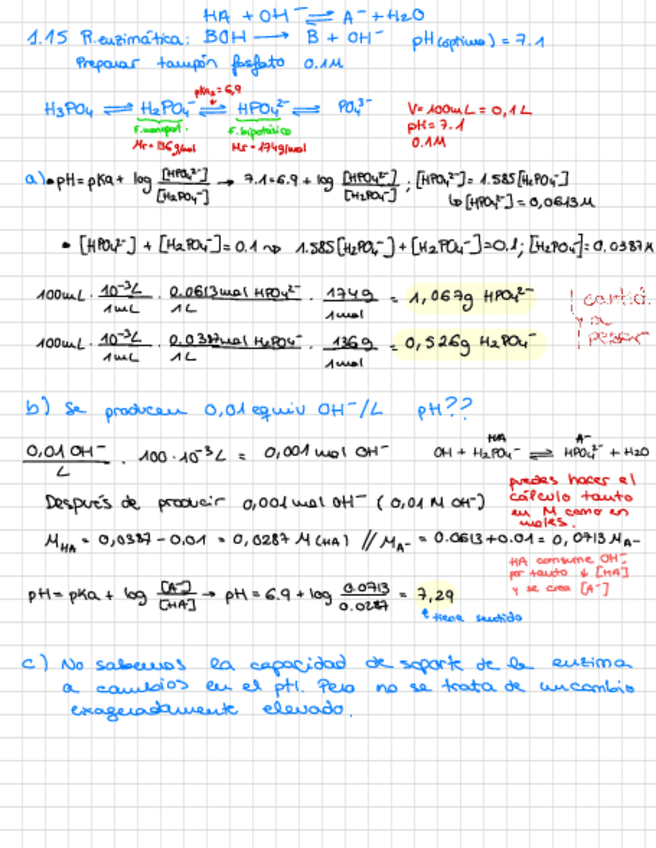 HA + OH⁻ ⇌ A⁻ + H2O
1.15 R.enzimática: BOH → B + OH⁻ pH(óptimo) = 7.1
Preparar tampón fosfato 0.1M
pKa₂ = 6,9
H3PO4 ⇌ H2PO4⁻ ⇌ HPO4²⁻ ⇌ PO4³⁻
F.monopot. F.bipotásico
Mr = 136g/mol Mr = 174g/mol
V = 100mL = 0,1L
pH = 7.1
0.1M
a) • pH = pKa + log [HPO4²⁻]/[H2PO4⁻] → 7.1 = 6.9 + log [HPO4²⁻]/[H2PO4⁻] ; [HPO4²⁻] = 1.585 [H2PO4⁻]
↳ [HPO4²⁻] = 0,0613M
• [HPO4²⁻] + [H2PO4⁻] = 0.1 → 1.585[H2PO4⁻] + [H2PO4⁻] = 0.1 ; [H2PO4⁻] = 0.0387M
100mL · 10⁻³L/1mL · 0.0613mol HPO4²⁻/1L · 174g/1mol = 1,067g HPO4²⁻
100mL · 10⁻³L/1mL · 0.0387mol H2PO4⁻/1L · 136g/1mol = 0,526g H2PO4⁻
cantid.
a
pesar
b) Se producen 0,01 equiv OH⁻/L pH??
0,01 OH⁻/L · 100·10⁻³L = 0,001 mol OH⁻
HA A⁻
OH + H2PO4⁻ ⇌ HPO4²⁻ + H2O
Después de producir 0,001 mol OH⁻ (0,01 M OH⁻)
puedes hacer el
cálculo tanto
en M como en
moles.
M HA = 0,0387 - 0,01 = 0,0287 M (HA) // M A⁻ = 0.0613 + 0.01 = 0,0713 M A⁻
HA consume OH⁻
por tanto ↓ [HA]
y se crea [A⁻]
pH = pKa + log [A⁻]/[HA] → pH = 6.9 + log 0.0713/0.0287 = 7,29
↑ tiene sentido
c) No sabemos la capacidad de soporte de la enzima
a cambios en el pH. Pero no se trata de un cambio
exageradamente elevado.